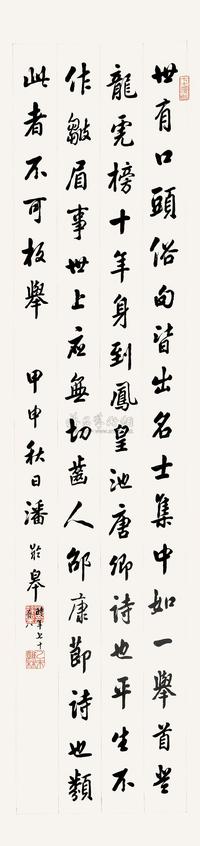 世有口頭俗句皆出名士集中如一舉首登
龍虎榜十年身到鳳皇池唐卿詩也平生不
作皺眉事世上應無切齒人邵康節詩也類
此者不可枚舉
甲申秋日潘齡皋
時年七十有八